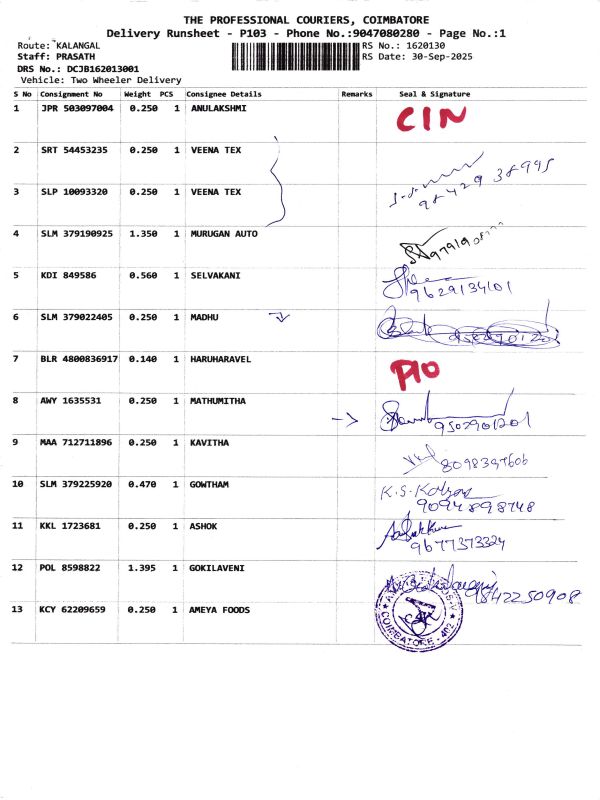 THE PROFESSIONAL COURIERS, COIMBATORE
Delivery Runsheet - P103 - Phone No.:9047080280 - Page No.:1
Route: KALANGAL RS No.: 1620130
Staff: PRASATH RS Date: 30-Sep-2025
DRS No.: DCJB162013001
Vehicle: Two Wheeler Delivery
S No Consignment No Weight PCS Consignee Details Remarks Seal & Signature
1 JPR 503097004 0.250 1 ANULAKSHMI CIN
2 SRT 54453235 0.250 1 VEENA TEX
98429 38995
3 SLP 10093320 0.250 1 VEENA TEX
4 SLM 379190925 1.350 1 MURUGAN AUTO
5 KDI 849586 0.560 1 SELVAKANI
9629134101
6 SLM 379022405 0.250 1 MADHU
7 BLR 4800836917 0.140 1 HARUHARAVEL P10
8 AWY 1635531 0.250 1 MATHUMITHA
9502901201
9 MAA 712711896 0.250 1 KAVITHA
8098397606
10 SLM 379225920 0.470 1 GOWTHAM K.S.
9094898748
11 KKL 1723681 0.250 1 ASHOK
9677373324
12 POL 8598822 1.395 1 GOKILAVENI
9842250908
13 KCY 62209659 0.250 1 AMEYA FOODS
COIMBATORE - 402